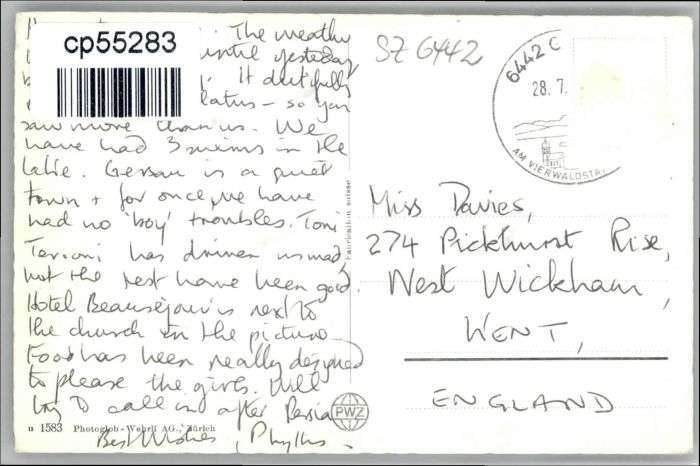 cp55283
The weather
until yesterday
It dutifully
latus - so you
saw more than us. We
have had 3 swims in the
lake. Gersau is a quiet
town + for once we have
had no 'boy' troubles. Toni
has driven us mad,
but the rest have been good.
Hotel Beauséjour is next to
the church in the picture.
Food has been really designed
to please the girls. Will
try to call in after Persia
Best Wishes, Phyllis.
n 1583 Photoglob-Wehrli AG., Zürich
Fabrication suisse
PWZ
SZ 6442
6442 G
28.7.
AM VIERWALDSTÄ
Miss Davies,
274 Pickhurst Rise,
West Wickham,
KENT,
ENGLAND